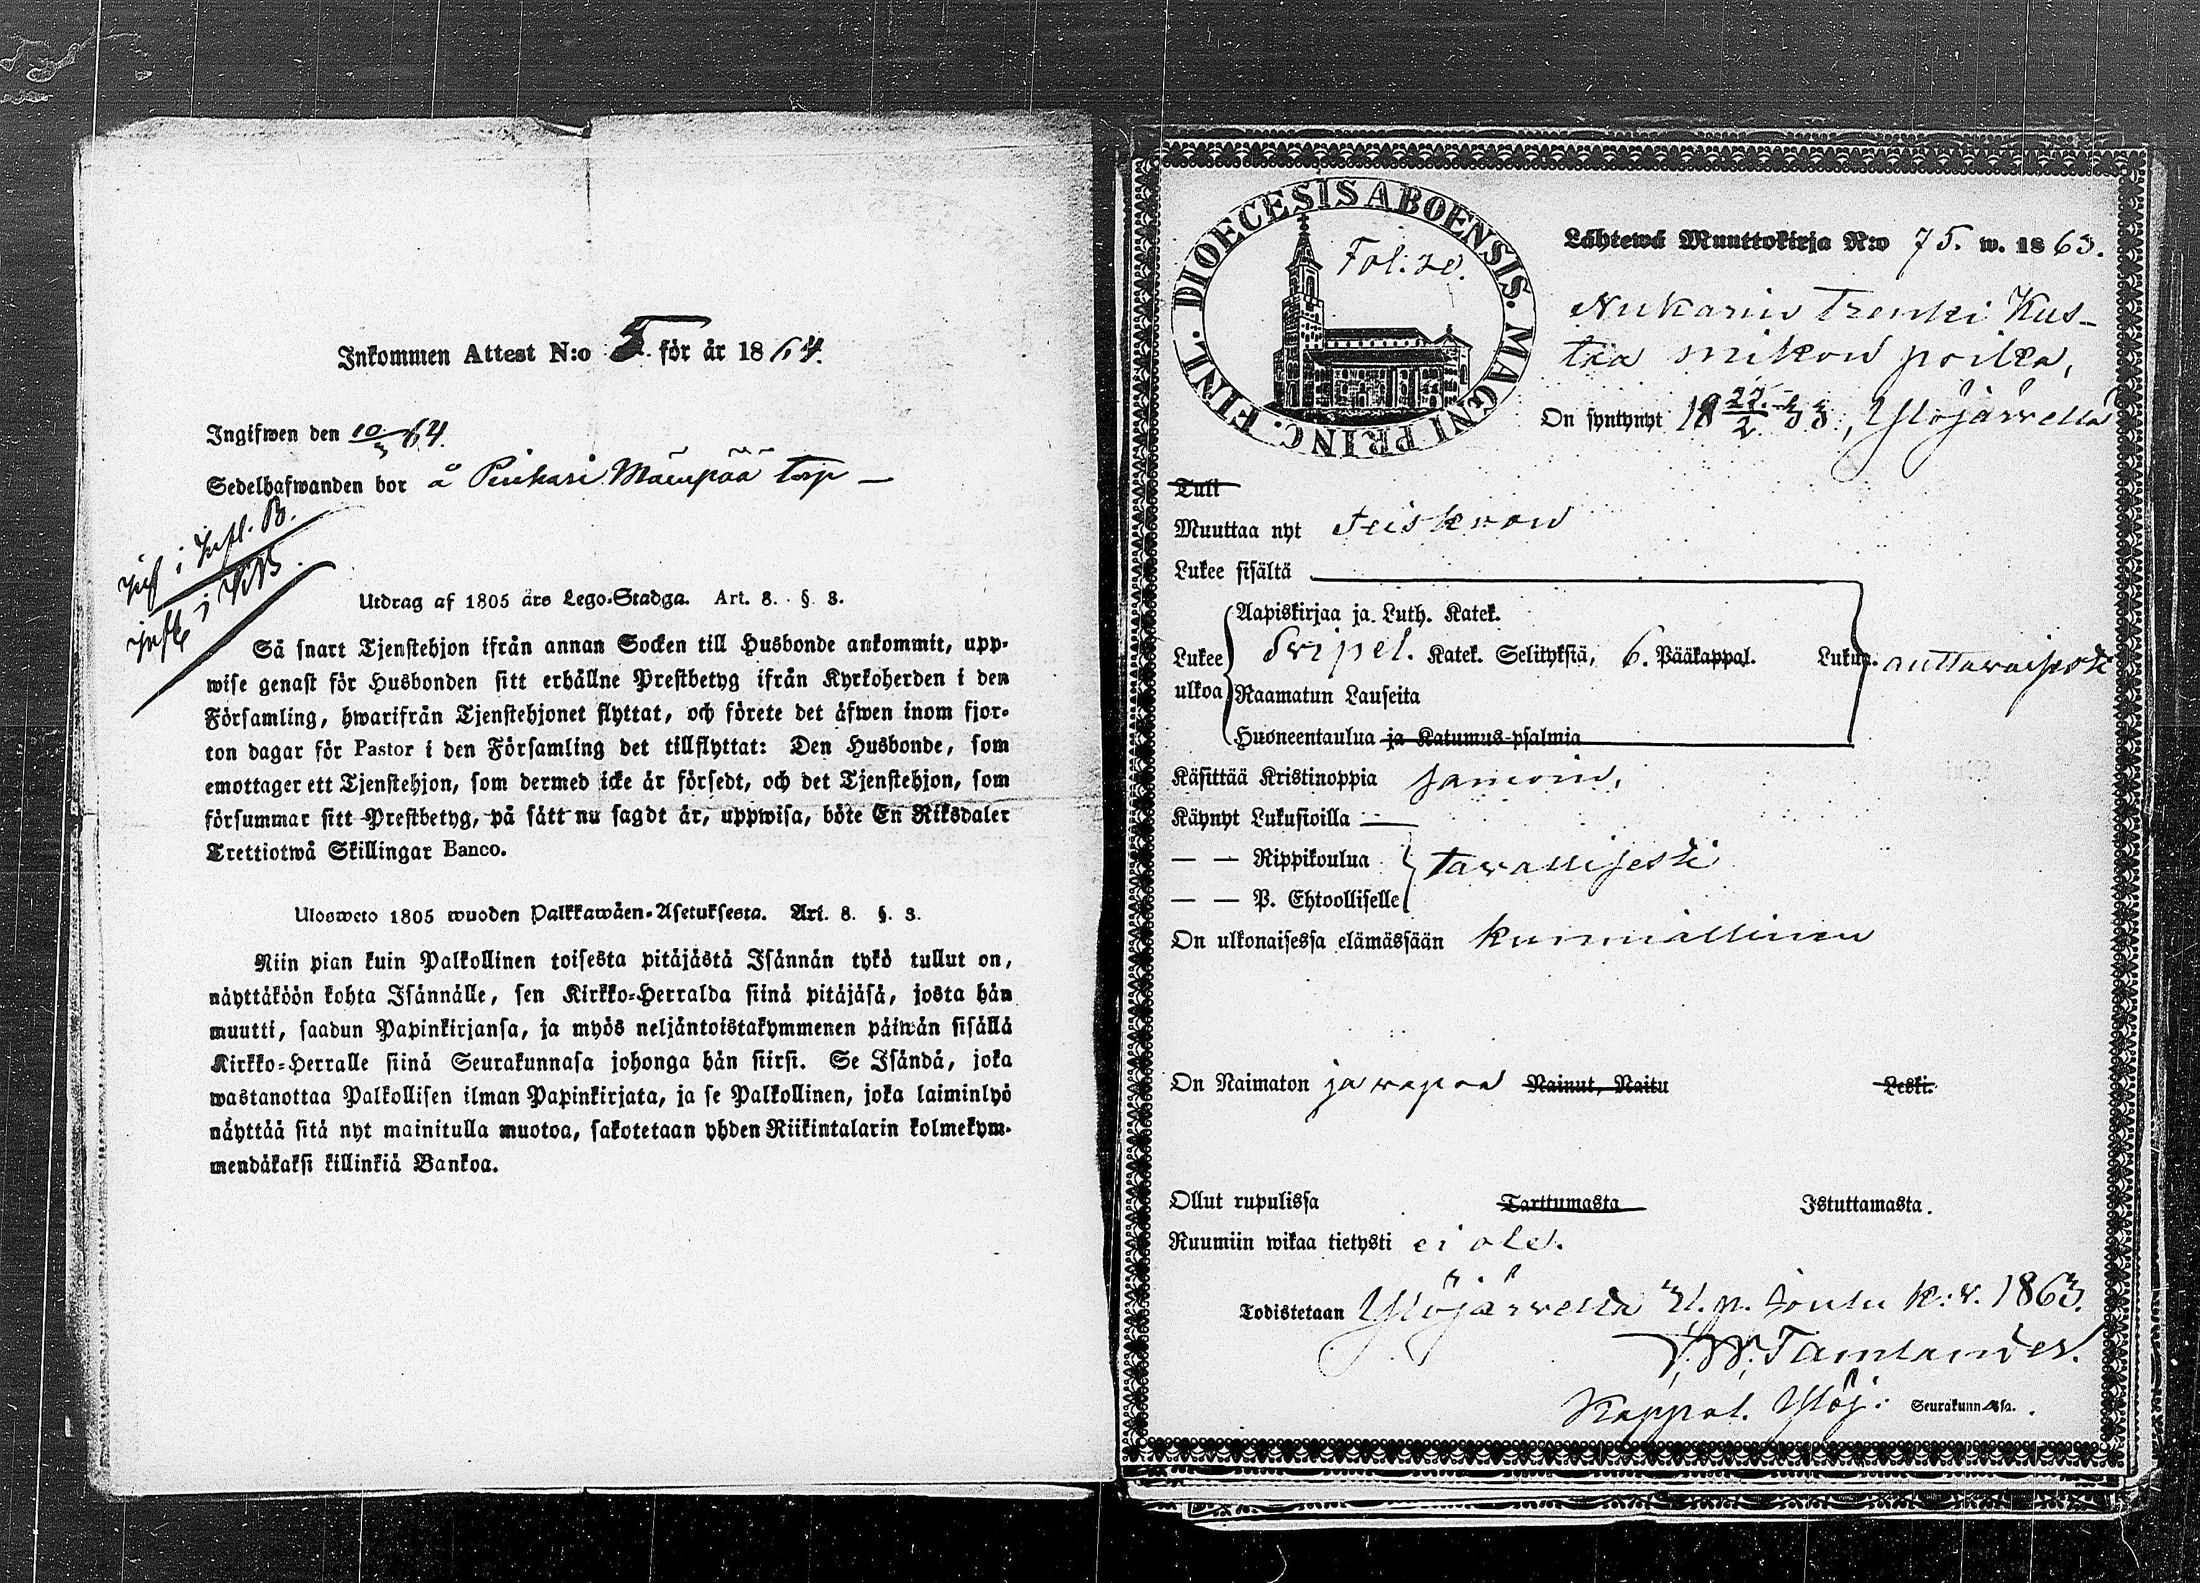 Inkommen Attest N:o 5. för år 1864.
Ingifwen den 10/3 64.
Sedelhafwanden bor å Mäenpää torp
Utdrag af 1805 års Lego-Stadga. Art. 8. § 3.
Så snart Tjenstehjon ifrån annan Socken till Husbonde ankommit, upp-
wise genast för Husbonden sitt erhållne Prestbetyg ifrån Kyrkoherden i den
Församling, hwarifrån Tjenstehjonet flyttat, och förete det äfwen inom fjor-
ton dagar för Pastor i den Församling det tillflyttat: Den Husbonde, som
emottager ett Tjenstehjon, som dermed icke är försedt, och det Tjenstehjon, som
försummar sitt Prestbetyg, på sätt nu sagdt är, uppwisa, böte En Riksdaler
Trettiotwå Skillingar Banco.
Ulosweto 1805 wuoden Palkkawäen-Asetuksesta. Art. 8. §. 3.
Niin pian kuin Palkollinen toisesta pitäjästä Isännän tykö tullut on,
näyttäköön kohta Isännälle, sen Kirkko-Herralda siinä pitäjäsä, josta hän
muutti, saadun Papinkirjansa, ja myös neljäntoistakymmenen päiwän sisällä
Kirkko-Herralle siinä Seurakunnasa johonga hän siirsi. Se Isändä, joka
wastanottaa Palkollisen ilman Papinkirjata, ja se Palkollinen, joka laiminlyö
näyttää sitä nyt mainitulla muotoa, sakotetaan yhden Riikintalarin kolmekym-
mendäkaksi killinkiä Bankoa.
DIOECESIS ABOENSIS. MAGNI PRINC. FINL.
Fol: 20.
Lähtewä Muuttokirja N:o 75. w. 1863.
Nukarin Trenki Kus-
taa Mikon poika,
On syntynyt 18 22/2 33, Ylöjärwellä
Tuli
Muuttaa nyt Teiskoon
Lukee sisältä
Aapiskirjaa ja Luth. Katek.
Lukee ulkoa Swipel. Katek. Selityksiä, 6. Pääkappal. Lukun. auttawaisesti
Raamatun Lauseita
Huoneentaulua ja Katumus-psalmia
Käsittää Kristinoppia samoin,
Käynyt Lukusioilla
— — Rippikoulua tawallisesti
— — P. Ehtoolliselle
On ulkonaisessa elämässään kunniallinen
On Naimaton ja wapaa Nainut, Naitu Leski.
Ollut rupulissa Tarttumasta Istuttamasta.
Ruumiin wikaa tietysti ei ole.
Todistetaan Ylöjärwellä 31. p. Joulu k:s. 1863.
Tamlander.
Kappal. Ylöj: Seurakunnasa.